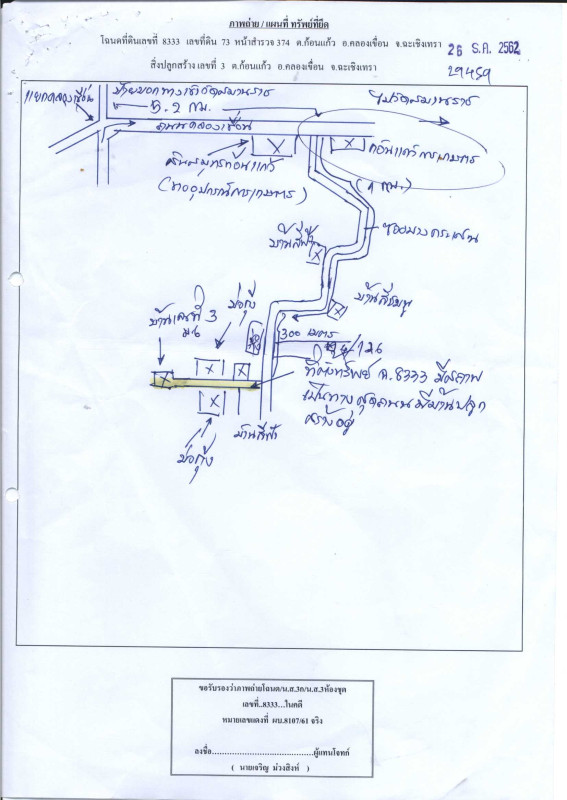 ภาพถ่าย / แผนที่ ทรัพย์ที่ยึด
โฉนดที่ดินเลขที่ 8333 เลขที่ดิน 73 หน้าสำรวจ 374 ต.ก้อนแก้ว อ.คลองเขื่อน จ.ฉะเชิงเทรา
26 ธ.ค. 2562
สิ่งปลูกสร้าง เลขที่ 3 ต.ก้อนแก้ว อ.คลองเขื่อน จ.ฉะเชิงเทรา
29459
แยกคลองเขื่อน
5.2 กม.
ถนนคลองเขื่อน
ก้อนแก้วการเกษตร
(ขายอุปกรณ์การเกษตร)
(1 กม.)
บ้านสีฟ้า
บ้านสีชมพู
บ้านเลขที่ 3
บ่อกุ้ง
300 เมตร
ที่ตั้งทรัพย์ ฉ.8333 มีสภาพ
เป็นทาง สุดถนน มีบ้านปลูก
สร้างอยู่
บ้านสีฟ้า
บ่อกุ้ง
ขอรับรองว่าภาพถ่ายโฉนด/น.ส.3ก/น.ส.3ห้องชุด
เลขที่..8333...ในคดี
หมายเลขแดงที่ ผบ.8107/61 จริง
ลงชื่อ.......................................ผู้แทนโจทก์
( นายเจริญ ม่วงสิงห์ )